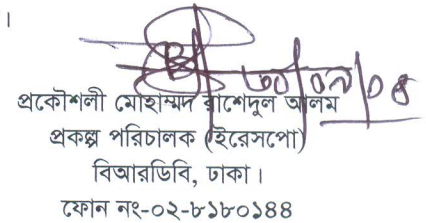 ।
৩০/০৯/০৪
প্রকৌশলী মোহাম্মদ রাশেদুল আলম
প্রকল্প পরিচালক (ইরেসপো)
বিআরডিবি, ঢাকা।
ফোন নং-০২-৮১৮০১৪৪